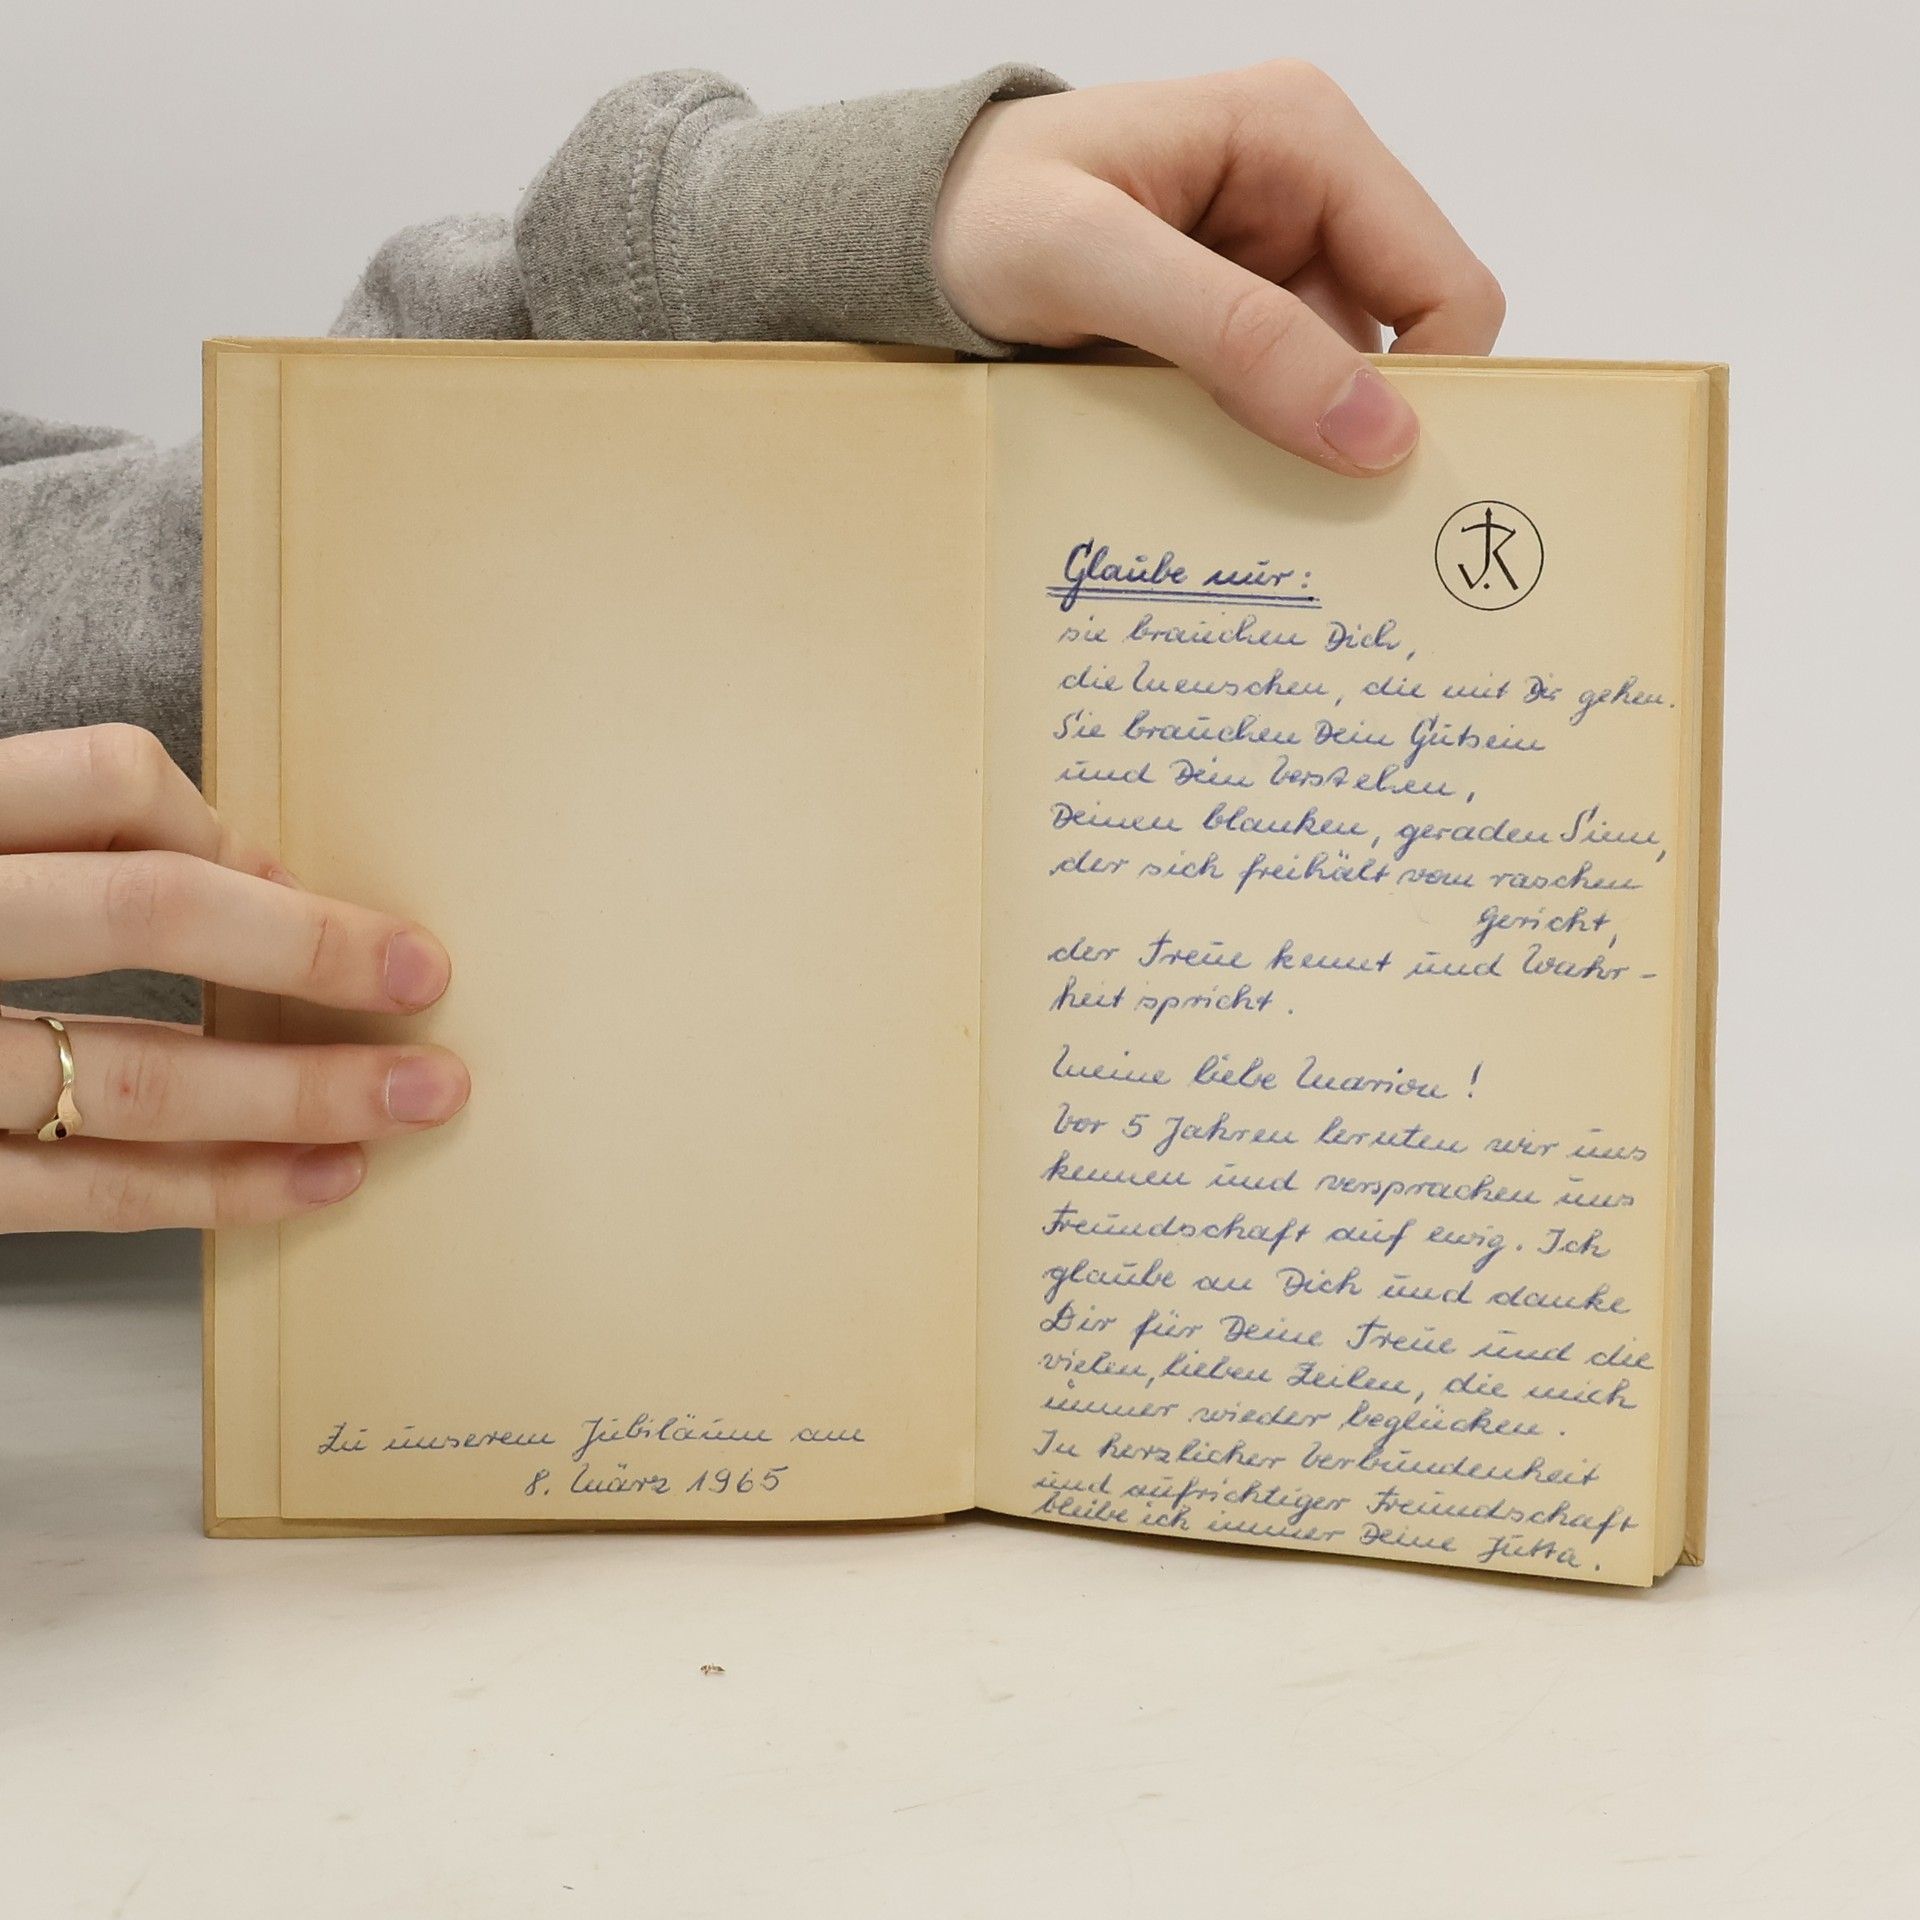 Zu unserem Jubiläum am
8. März 1965
Glaube nur:
sie brauchen Dich,
die Menschen, die mit Dir gehen.
Sie brauchen Dein Gutsein
und Dein Verstehen,
Deinen blanken, geraden Sinn,
der sich freihält vom raschen
Gericht,
der Treue kennt und Wahr-
heit spricht.
Meine liebe Marion!
Vor 5 Jahren lernten wir uns
kennen und versprachen uns
Freundschaft auf ewig. Ich
glaube an Dich und danke
Dir für Deine Treue und die
vielen, lieben Zeilen, die mich
immer wieder beglücken.
In herzlicher Verbundenheit
und aufrichtiger Freundschaft
bleibe ich immer Deine Jutta.